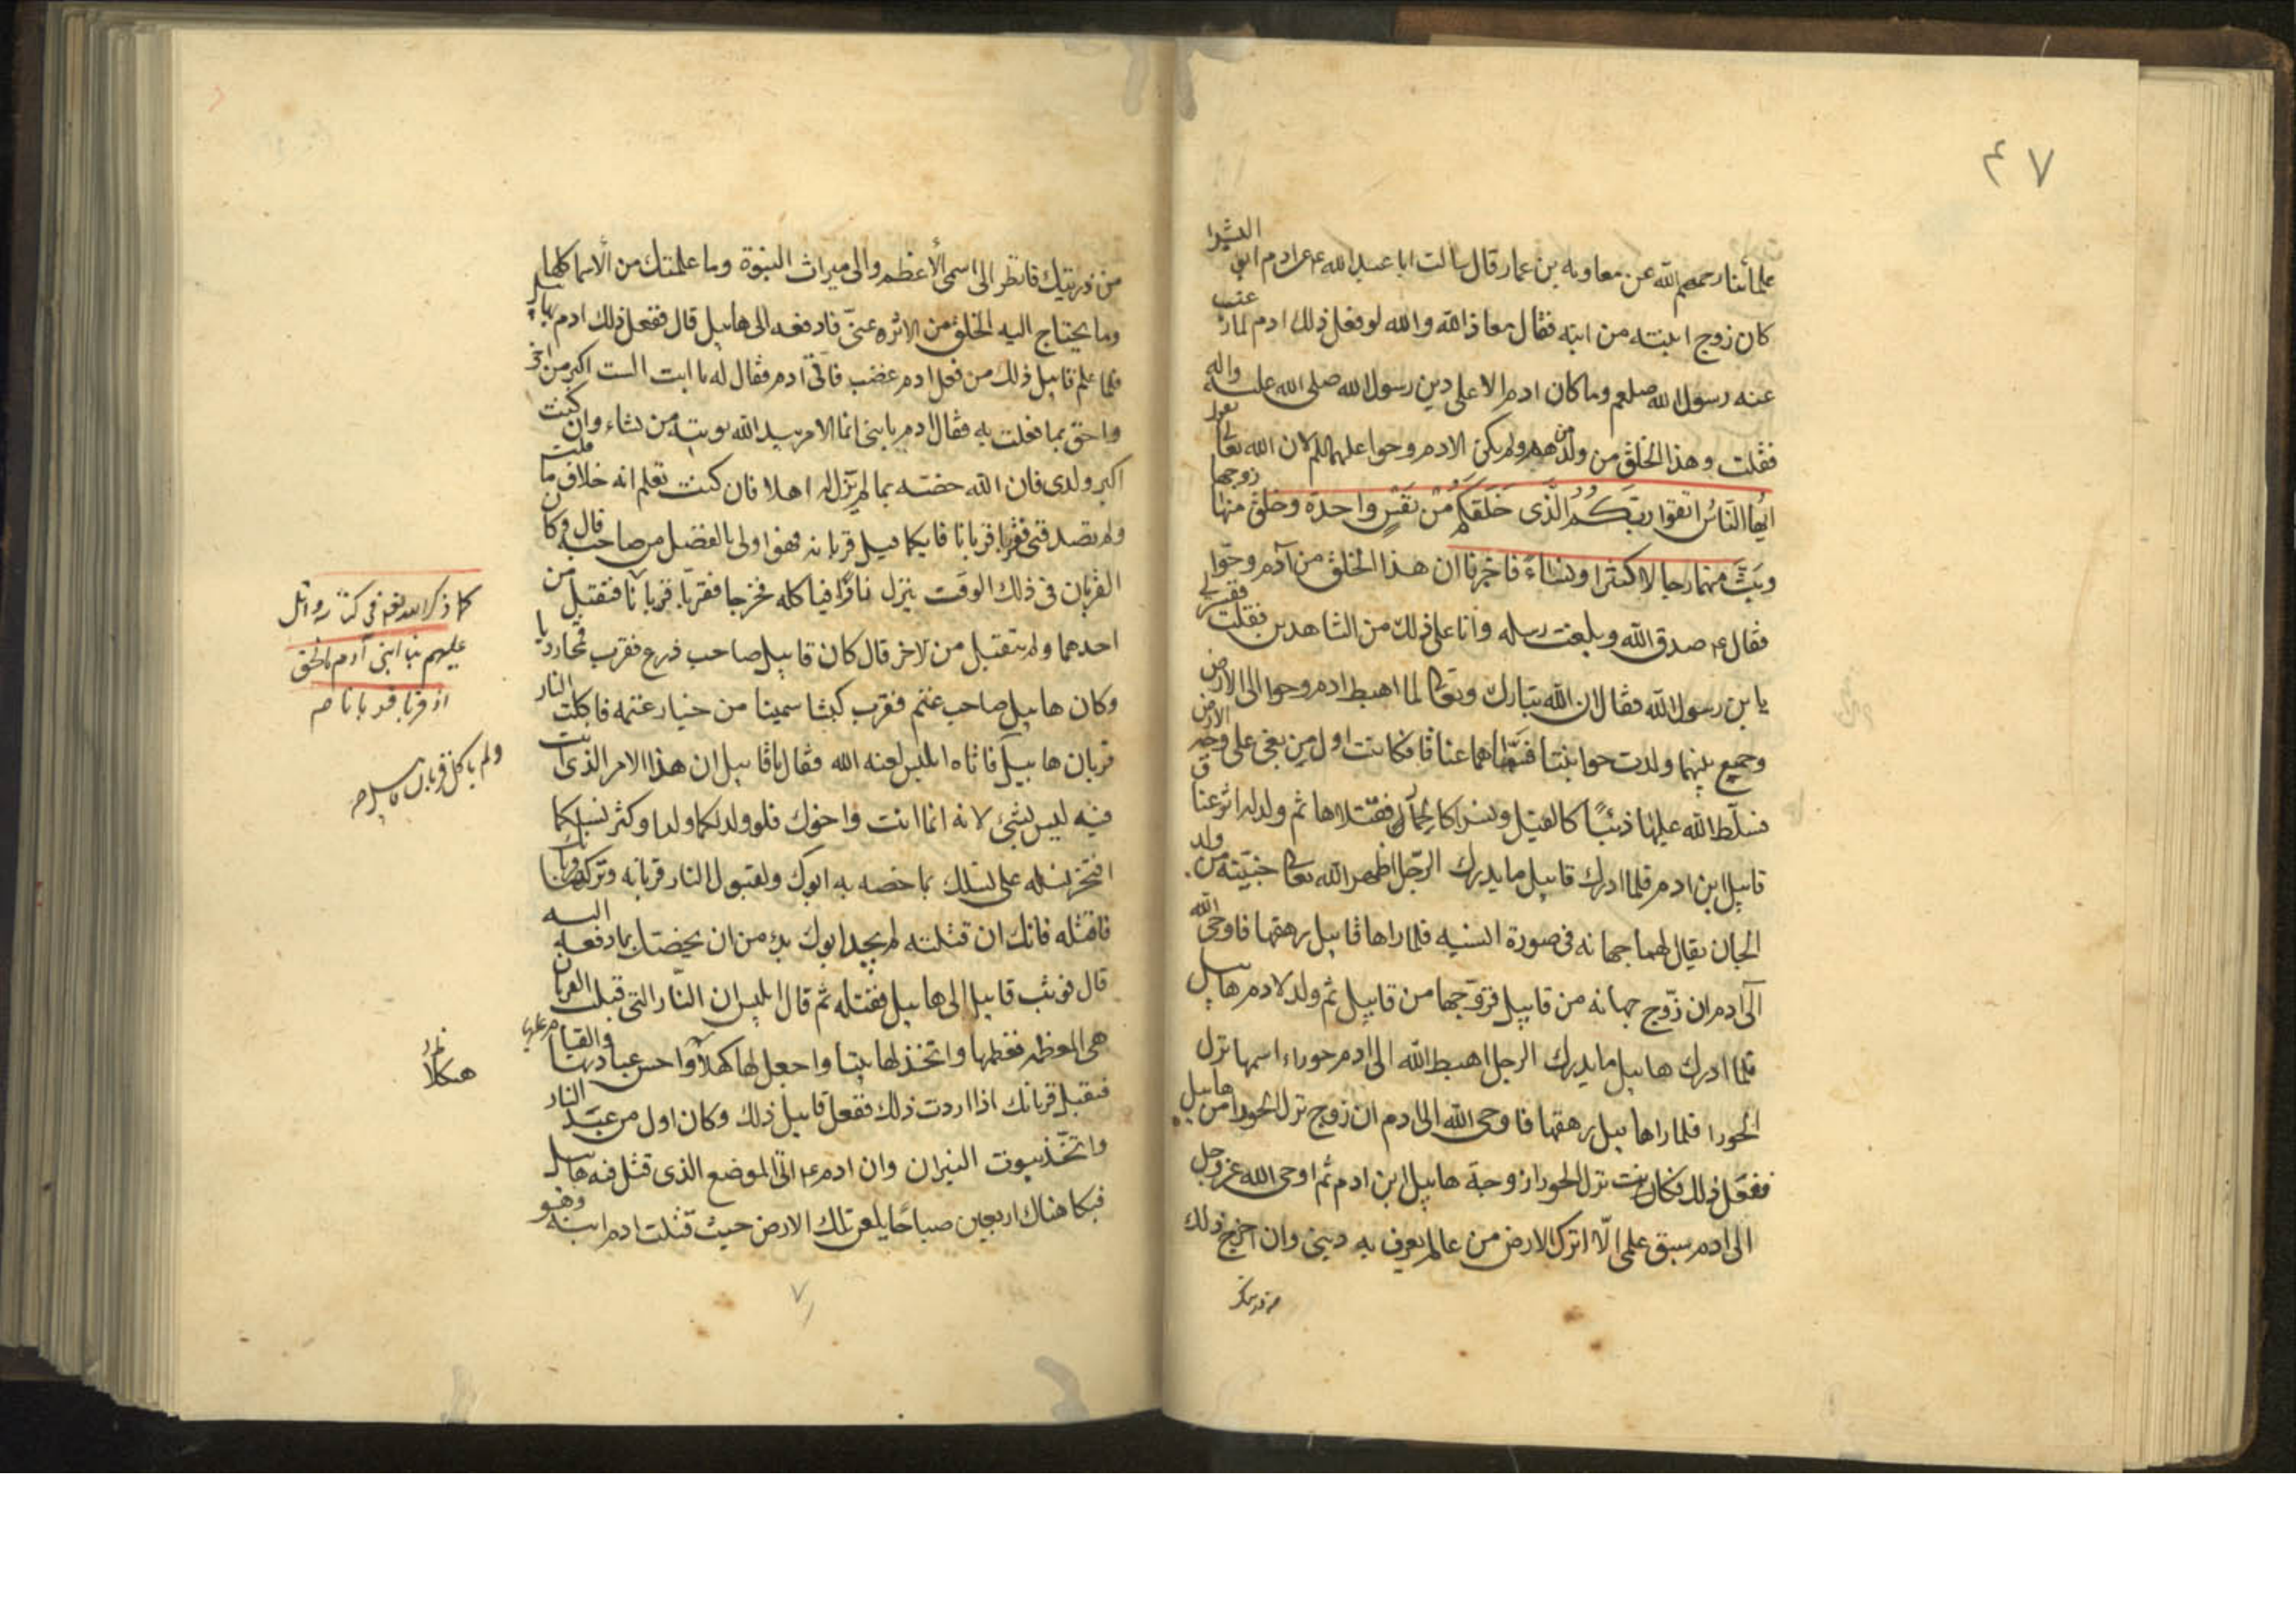 ٤٧
علمائنا رحمهم الله عن معاويه بن عمار قال سالت ابا عبد الله ع عن ادم ابى البشرا
كان زوج ابنته من ابنه فقال معاذ الله والله لو فعل ذلك ادم لما رغب
عنه رسول الله صلعم وما كان ادم الا على دين رسول الله صلى الله عليه واله
فقلت وهذا الخلق من ولد من هم ولم يكن الا ادم وحوا عليهما السلم لان الله تعالى يقول
ايها الناس اتقوا ربكم الذى خلقكم من نفس واحدة وخلق منها زوجها
وبث منهما رجالا كثيرا ونساء فاخبرنا ان هذا الخلق من آدم وحوا
فقال ع صدق الله وبلغت رسله وانا على ذلك من الشاهدين فقلت فسر لى
يا بن رسول الله فقال ان الله تبارك وتعالى لما اهبط ادم وحوا الى الارض
وجمع بينهما ولدت حوا بنتا فسماها عناقا فكانت اول من بغى على وجه الارض
فسلط الله عليها ذئبا كالفيل ونسرا كالحمار فقتلاها ثم ولد له اثر عناق
قابيل ابن ادم فلما ادرك قابيل ما يدرك الرجل اظهر الله تعالى جنية من ولد
الجان يقال لهما جهانه فى صورة انسيه فلما راها قابيل رهقها فاوحى الله
الى ادم ان زوج جهانه من قابيل فزوجها من قابيل ثم ولد لادم هابيل
فلما ادرك هابيل ما يدرك الرجل اهبط الله الى ادم حوراء اسمها نزل
الحورا فلما راها هابيل رهقها فاوحى الله الى ادم ان زوج نزل الحورا من هابيل
ففعل ذلك فكان بنت نزل الحورا زوجة هابيل ابن ادم ثم اوحى الله عز وجل
الى ادم سبق علمى الا اترك الارض من عالم يعرف به دينى وان اخرج ذلك
من ذريتك
من ذريتك فانظر الى اسمى الأعظم والى ميراث النبوة وما علمتك من الاسما كلها
وما يحتاج اليه الخلق من الاثره عنى فادفعه الى هابيل قال ففعل ذلك ادم بهابيل
فلما علم قابيل ذلك من فعل ادم غضب فاتى آدم فقال له يا ابت الست اكبر من اخى
واحق بما فعلت به فقال ادم يا بنى انما الامر بيد الله يوتيه من يشاء وان كنت
اكبر ولدى فان الله خصه بما لم يزل له اهلا فان كنت تعلم انه خلاف ما قلت
ولم تصدقنى فقربا قربانا فايكما قبل قربانه فهو اولى بالفضل من صاحبه قال وكان
القربان فى ذلك الوقت ينزل نارا فيأكله فخرجا فقربا قربانا فتقبل من
احدهما ولم يتقبل من الاخر قال كان قابيل صاحب زرع فقرب قمحا رديا
وكان هابيل صاحب غنم فقرب كبشا سمينا من خيار غنمه فاكلت النار
قربان هابيل فاتاه ابليس لعنه الله فقال يا قابيل ان هذا الامر الذى انت
فيه ليس بشئ لانه انما انت واخوك فلو ولد لكما ولد وكثر نسلكما
افتخر نسله على نسلك بما خصه به ابوك ولقبول النار قربانه وتركها قربانك
فاقتله فانك ان قتلته لم يجد ابوك بد من ان يخصك بما دفعه اليه
قال فوثب قابيل الى هابيل فقتله ثم قال ابليس ان النار التى قبلت القربان
هى المعظمه فعظمها واتخذ لها بيتا واجعل لها كهلا واحسن عبادتها والقيام عليها
فيقبل قربانك اذا اردت ذلك ففعل قابيل ذلك وكان اول من عبد النار
واتخذ بيوت النيران وان ادم ع اتى الموضع الذى قتل فيه هابيل
فبكا هناك اربعين صباحا يلعن تلك الارض حيث قبلت ادم ابنه وهو
كما ذكر الله تعه فى كتابه واتل
عليهم نبا ابنى آدم بالحق
اذ قربا قربانا صح
ولم ياكل قربان قابيل صح
اهلا
٧